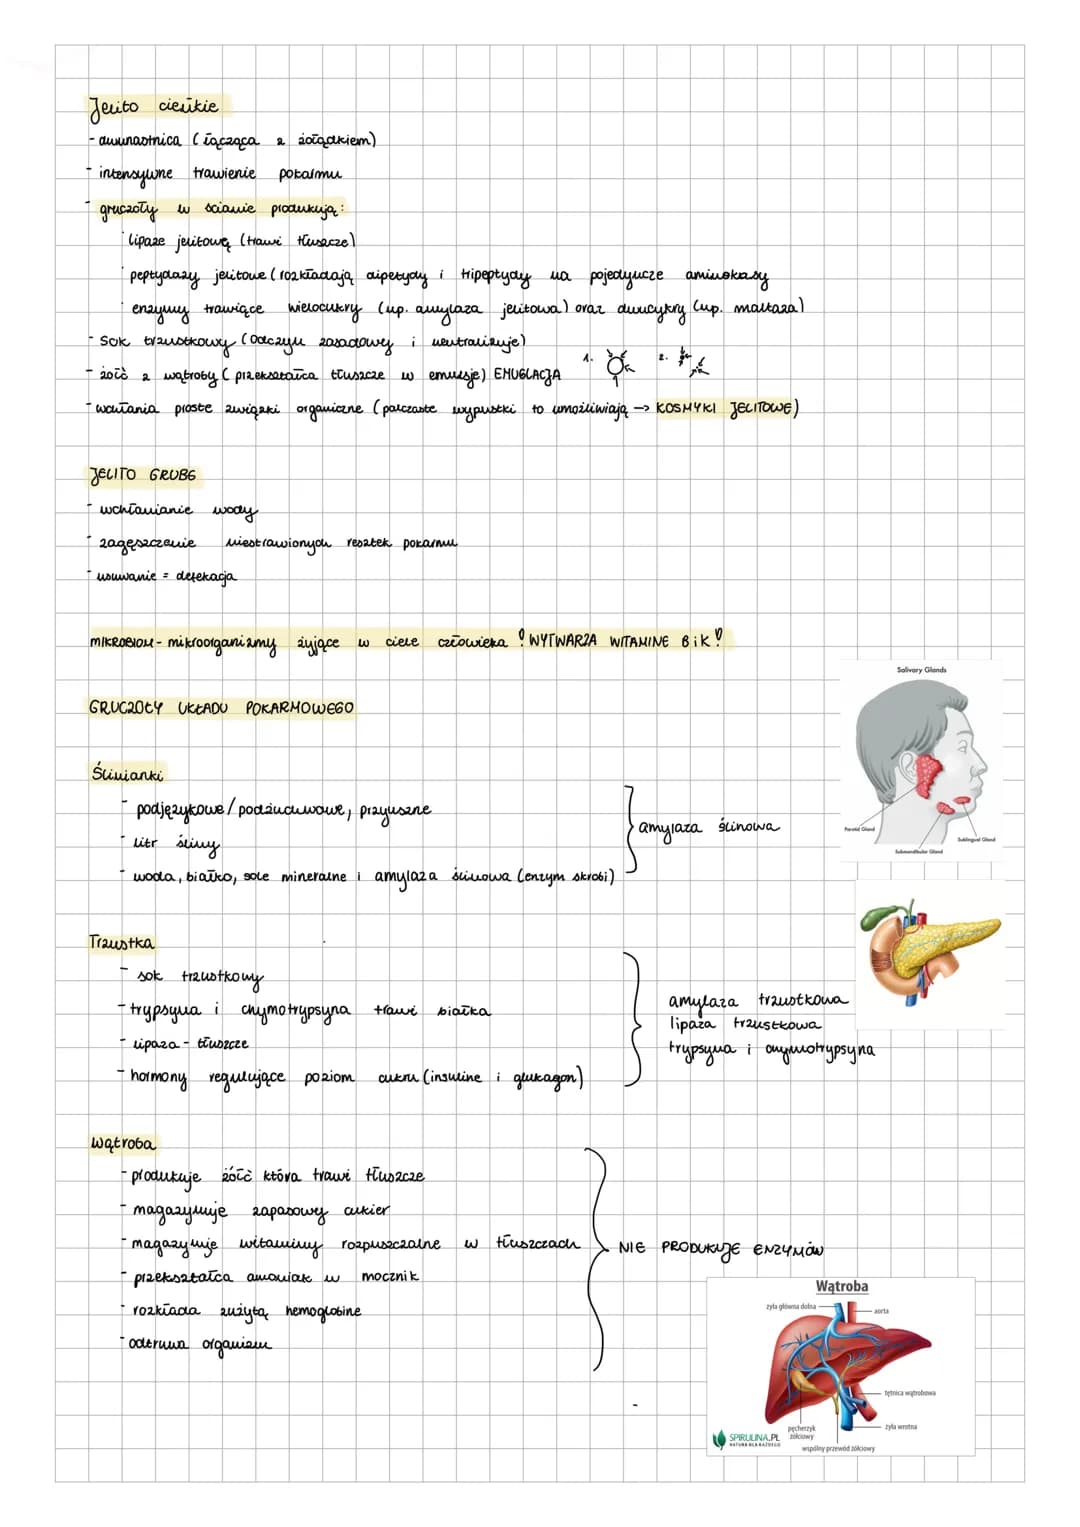 Jelito cienkie
- dwunastnica (łącząca z żołądkiem)
- intensywne trawienie pokarmu
- gruczoły w ścianie produkują:
· lipaze jelitową (trawi tłuszcze)
· peptydazy jelitowe (rozkładają dipetydy i tripeptydy na pojedyncze aminokasy
· enzymy trawiące wielocukry (np. amylaza jelitowa) oraz dwucykry (np. maltaza)
- Sok trzustkowy (odczyn zasadowy i neutralizuje)
- żółć z wątroby (przekształca tłuszcze w emulsje) EMUGLACJA 1. 2.
- wchłania proste związki organiczne (palczaste wypustki to umożliwiają → KOSMYKI JELITOWE)
JELITO GRUBE
- wchłanianie wody
- zagęszczenie niestrawionych resztek pokarmu
- usuwanie = defekacja
MIKROBIOM - mikroorganizmy żyjące w ciele człowieka ! WYTWARZA WITAMINE B i K !
GRUCZOŁY UKŁADU POKARMOWEGO
Salivary Glands
Ślinianki
- podjęzykowe / podżuchwowe, przyuszne
amylaza ślinowa
Parotid Gland
Sublingual Gland
Submandibular Gland
- litr śliny
- woda, białko, sole mineralne i amylaza ślinowa (enzym skrobi)
Trzustka
- sok trzustkowy
- trypsyna i chymotrypsyna trawi białka
- lipaza - tłuszcze
- hormony regulujące poziom cukru (insuline i glukagon)
amylaza trzustkowa
lipaza trzustkowa
trypsyna i chymotrypsyna
Wątroba
- produkuje żółć która trawi tłuszcze
- magazynuje zapasowy cukier
- magazynuje witaminy rozpuszczalne w tłuszczach
NIE PRODUKUJE ENZYMÓW
- przekształca amoniak w mocznik
- rozkłada zużytą hemoglobine
- odtruwa organizm
Wątroba
żyła główna dolna
aorta
tętnica wątrobowa
żyła wrotna
pęcherzyk
żółciowy
wspólny przewód żółciowy
SPIRULINA.PL
NATURA DLA KAŻDEGO